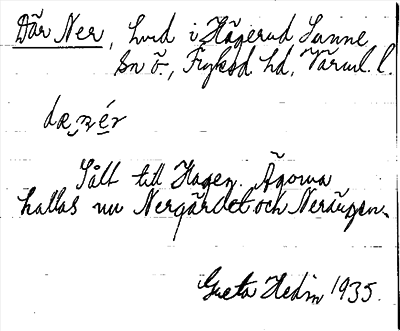 Där Ner, hvid i Hägerud Sunne
Sn ö., Fryksd hd, Värml. l.
dæ, nér
Sålt till Hagen. Ägorna
kallas nu Nergärdet och Neräng̣en.
Greta Hedin 1935.